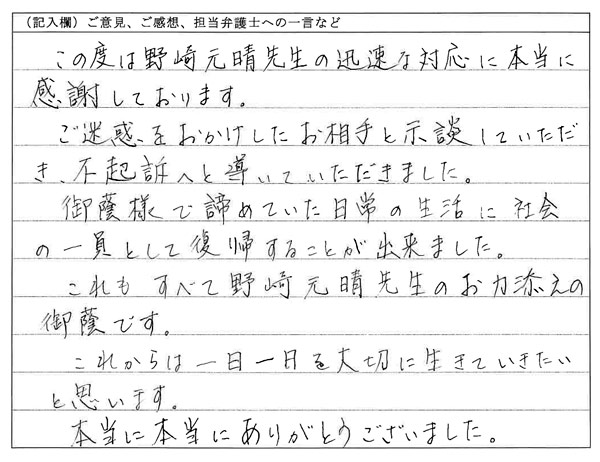 （記入欄）ご意見、ご感想、担当弁護士への一言など
この度は野崎元晴先生の迅速な対応に本当に
感謝しております。
ご迷惑をおかけしたお相手と示談していただ
き、不起訴へと導いていただきました。
御蔭様で諦めていた日常の生活に社会
の一員として復帰することが出来ました。
これもすべて野崎元晴先生のお力添えの
御蔭です。
これからは一日一日を大切に生きていきたい
と思います。
本当に本当にありがとうございました。